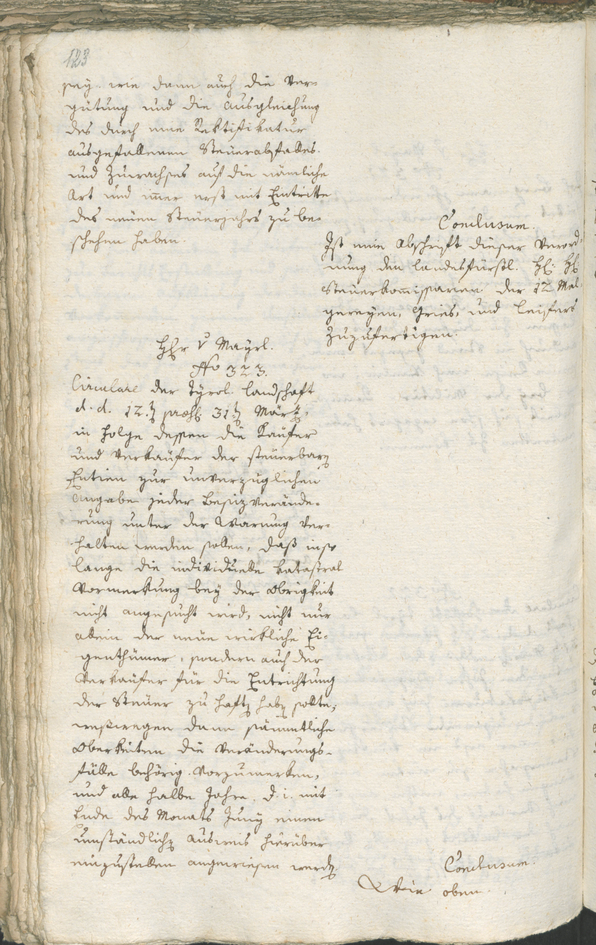 123
sey, wie dann auch die Ver-
gütung und die Ausgleichung
des durch eine Rektifikatur
ausgefallenen Steuerabfalles
und Zuwachses auf die nämliche
Art und immer erst mit Eintritte
des neuen Steuerjahrs zu be-
schehen haben.
Conclusum
Ist eine Abschrift dieser Verord-
nung den landesfürstl. H. H.
Steuerkommissarien der 12 Mal-
greyen, Gries, und Leifers
zuzufertigen.
Hr v Mayrl.
No 323.
Circulare der Tyrol. Landschaft
d. d. 12. 31 März,
in Folge dessen die Käufer
und Verkäufer der steuerbaren
Entien zur unverzüglichen
Angabe jeder Besizverände-
rung unter der Warnung ver-
halten werden sollen, daß inso
lange die individuelle Katastral
Vormerkung bey der Obrigkeit
nicht angesucht wird, nicht nur
allein der neue wirkliche Ei-
genthümer, sondern auch der
Verkäufer für die Entrichtung
der Steuer zu haften haben solle,
weßwegen dann sämmtliche
Obrigkeiten die Veränderungs-
fälle behörig vorzumerken,
und alle halbe Jahre, d. i. mit
Ende des Monats Juny einen
umständlichen Ausweis hierüber
einzustellen angewiesen werden.
Conclusum.
Wie oben.